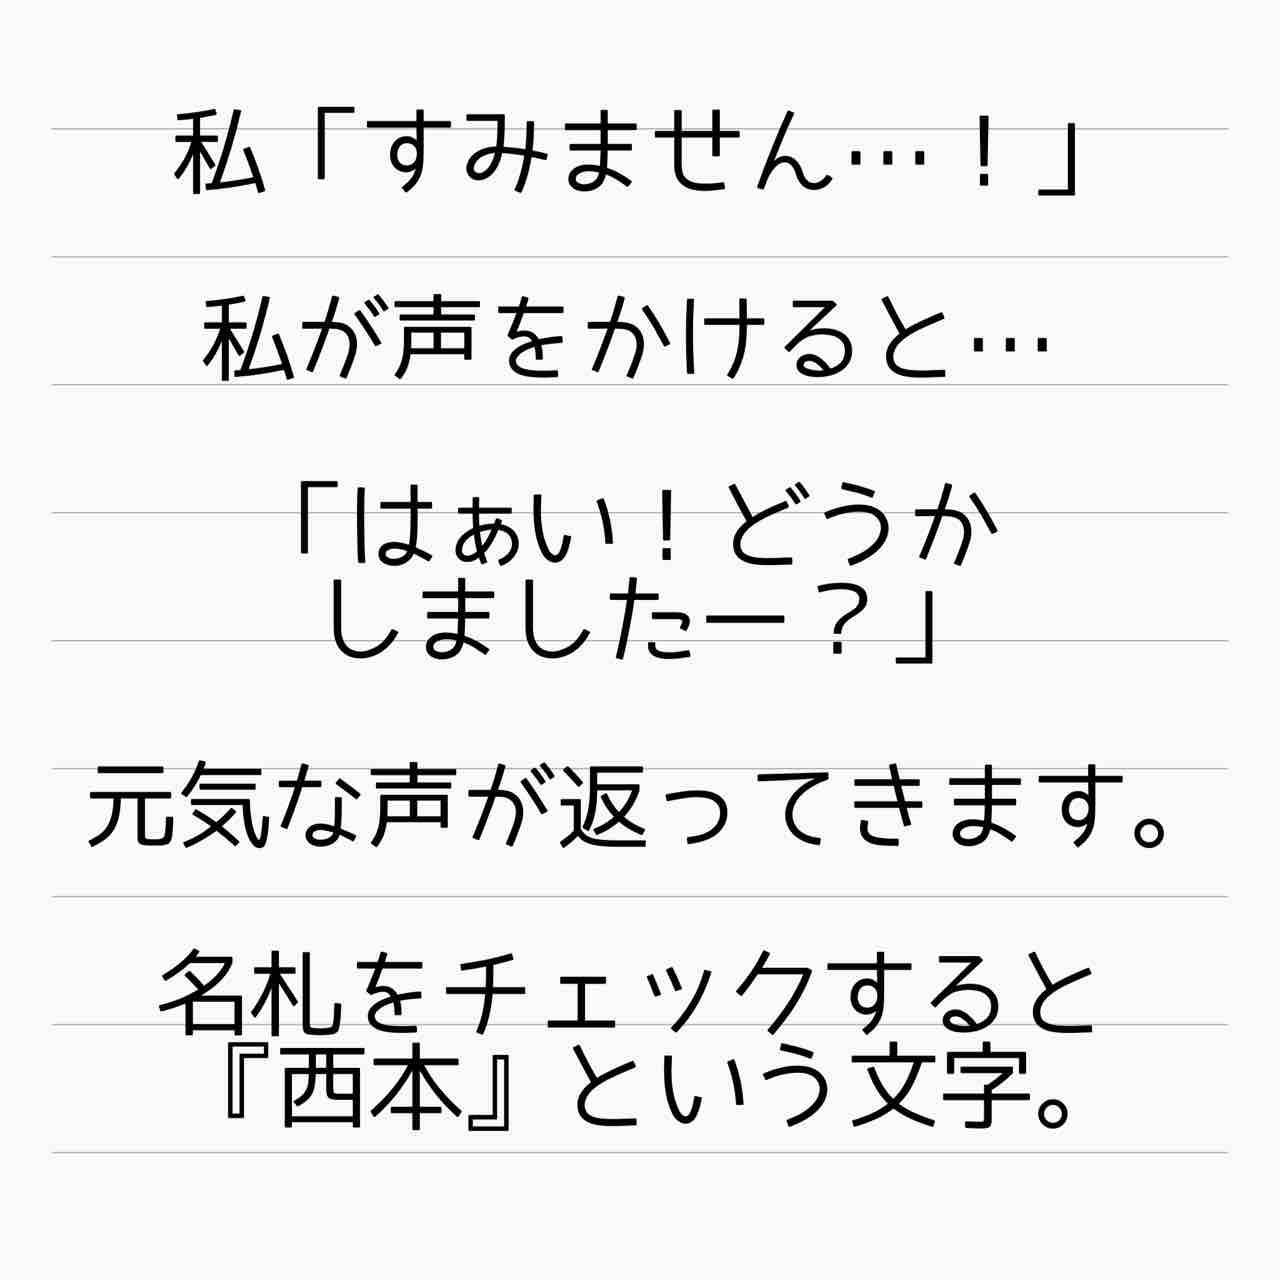 私「すみません…！」
私が声をかけると…
「はぁい！どうか
しましたー？」
元気な声が返ってきます。
名札をチェックすると
『西本』という文字。